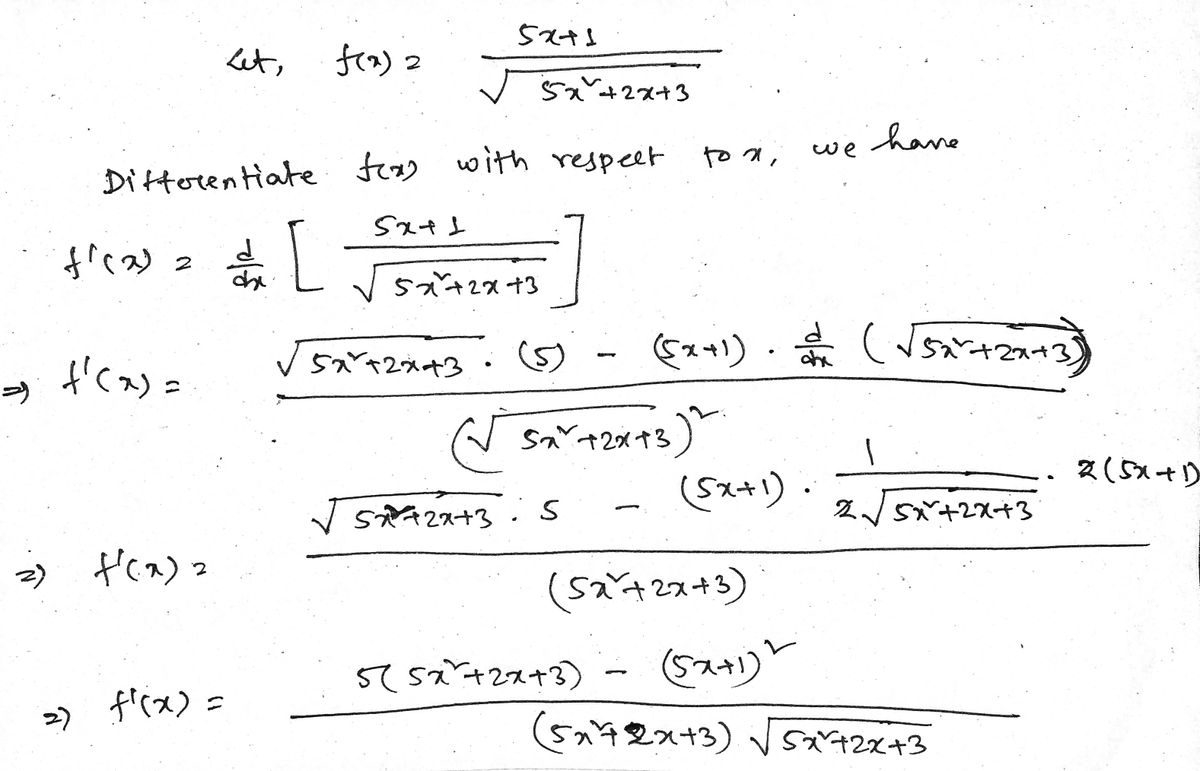 Let, f(x) = (5x+1)/√(5x²+2x+3)
Differentiate f(x) with respect to x, we have
f'(x) = d/dx [ (5x+1)/√(5x²+2x+3) ]
⇒ f'(x) = ( √(5x²+2x+3) · (5) − (5x+1) · d/dx (√(5x²+2x+3)) ) / (√(5x²+2x+3))²
⇒ f'(x) = ( √(5x²+2x+3) · 5 − (5x+1) · 1/(2√(5x²+2x+3)) · 2(5x+1) ) / (5x²+2x+3)
⇒ f'(x) = ( 5(5x²+2x+3) − (5x+1)² ) / ( (5x²+2x+3) √(5x²+2x+3) )